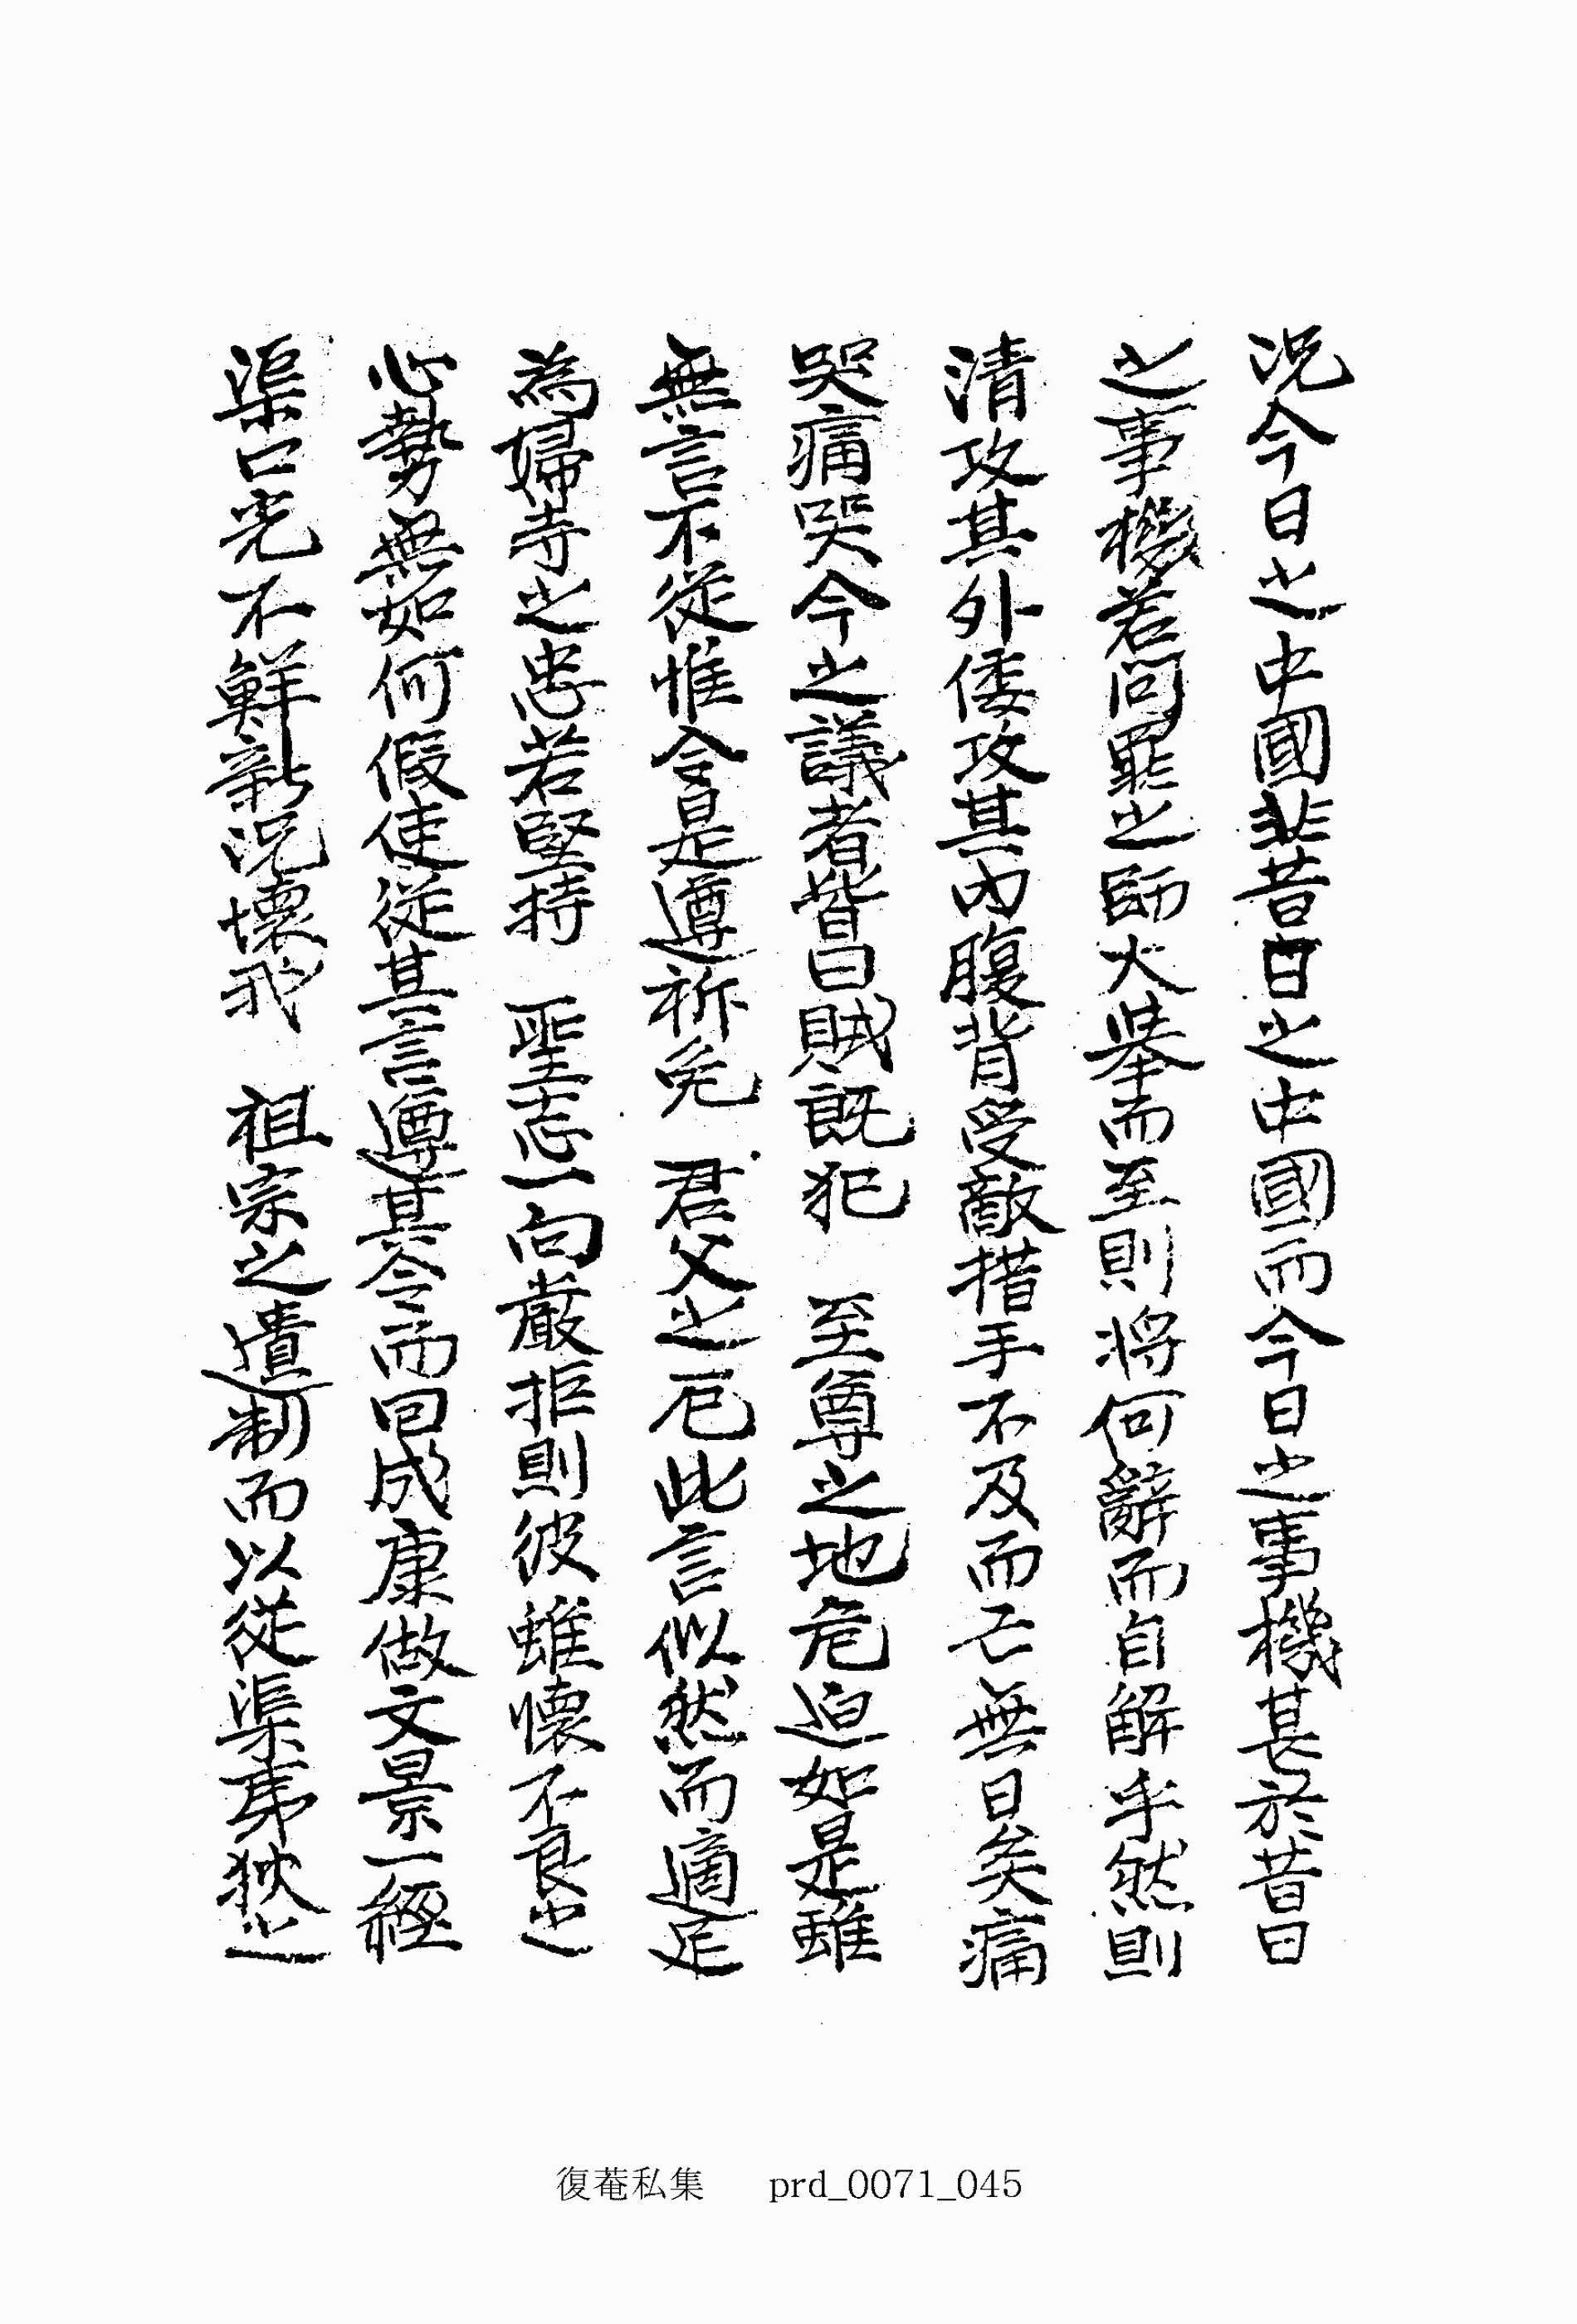 况今日之中國非昔日之中國而今日之事機甚於昔日
之事機若問罪之師大擧而至則将何辭而自解乎然則
清攻其外倭攻其內腹背受敵措手不及而亡無日矣痛
哭痛哭今之議者皆曰賊旣犯 至尊之地危迫如是雖
無言不從惟令是遵祈免 君父之厄此言似然而適足
為婦寺之忠若堅持 聖志一向嚴拒則彼雖懷不良之
心勢無如何假使從其言遵其令而回成康做文景一經
渠口光不鮮新况壞我 祖宗之遺制而以從渠夷狄之
復菴私集 prd_0071_045